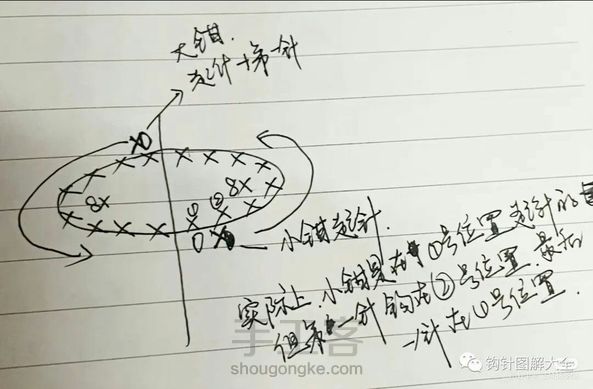 大钳
起针+第一针
8X
①
②
8X
小钳起针.
实际上,小钳是在①号位置起针的
但第一针钩在②号位置.最后
一针在①号位置.
手工客
shougongke.com
钩针图解大全